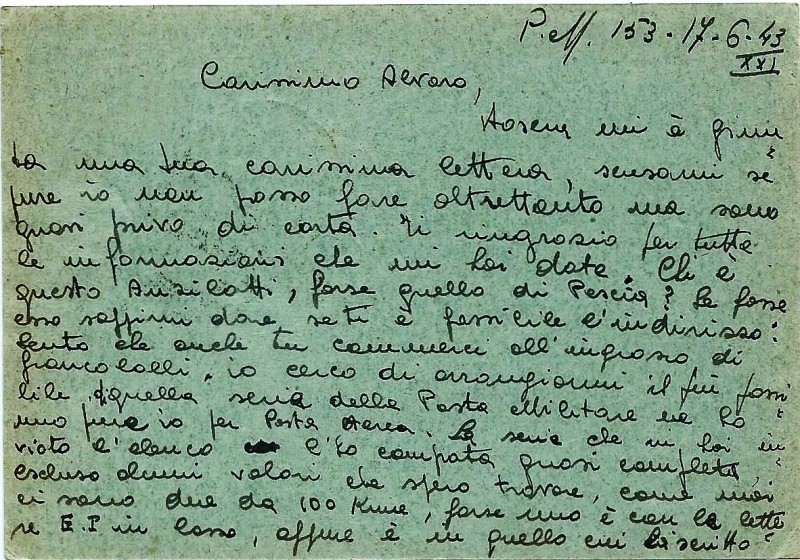 P.M. 153 - 17-6-43
XXI
Carissimo Alvaro,
Stasera mi è giun
ta una tua carissima lettera, scusami se
pure io non posso fare altrettanto ma sono
quasi privo di carta. Ti ringrazio per tutte
le informazioni che mi hai date. Chi è
questo Ansilotti, forse quello di Pescia? Se fosse
esso sappimi dare se ti è possibile l'indirizzo.
Sento che anche tu commerci all'ingrosso di
francobolli, io cerco di arrangiarmi il più possi
bile, quella serie della Posta Militare ne ho
uno pure io per Posta Aerea. La serie che mi hai in
viato l'elenco l'ho comprata quasi completa,
escluso alcuni valori che spero trovare, come mai
ci sono due da 100 Kune, forse uno è con la lette
re E.I in basso, oppure è in quello cui hà scritto